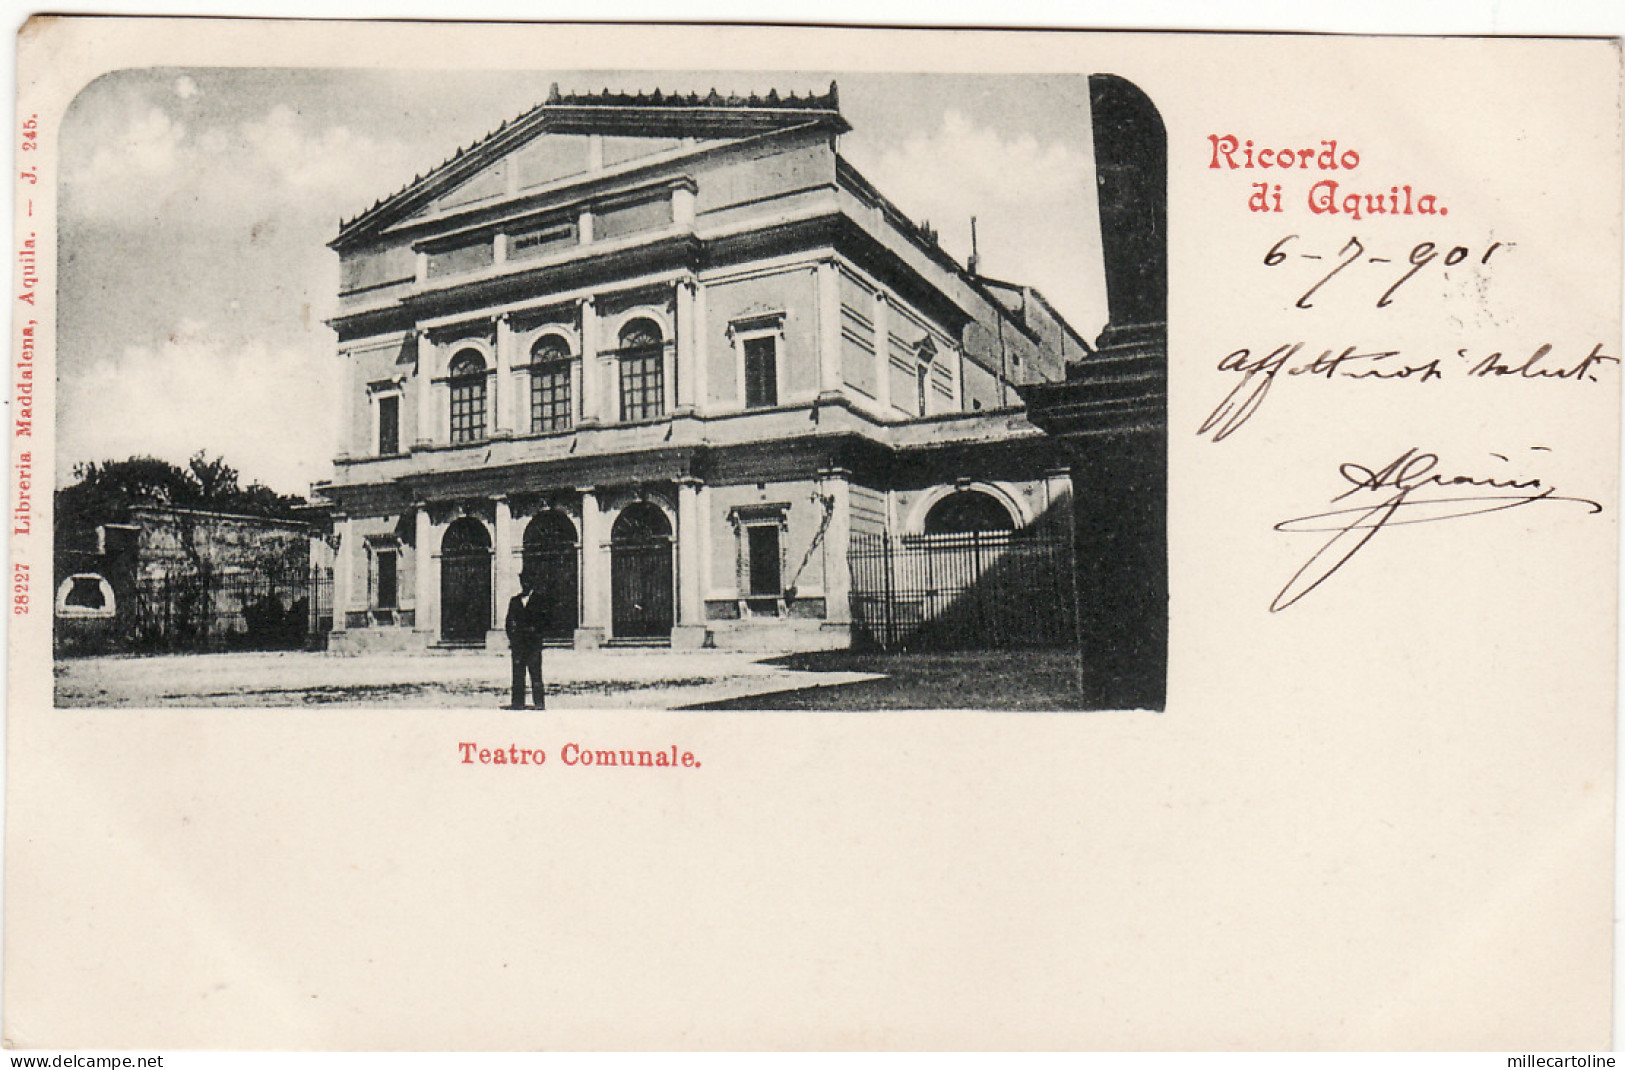 Ricordo
di Aquila.
6-7-901
Affettuosi saluti
28227 Libreria Maddalena, Aquila. — J. 245.
Teatro Comunale.
delcampe.net
millecartoline